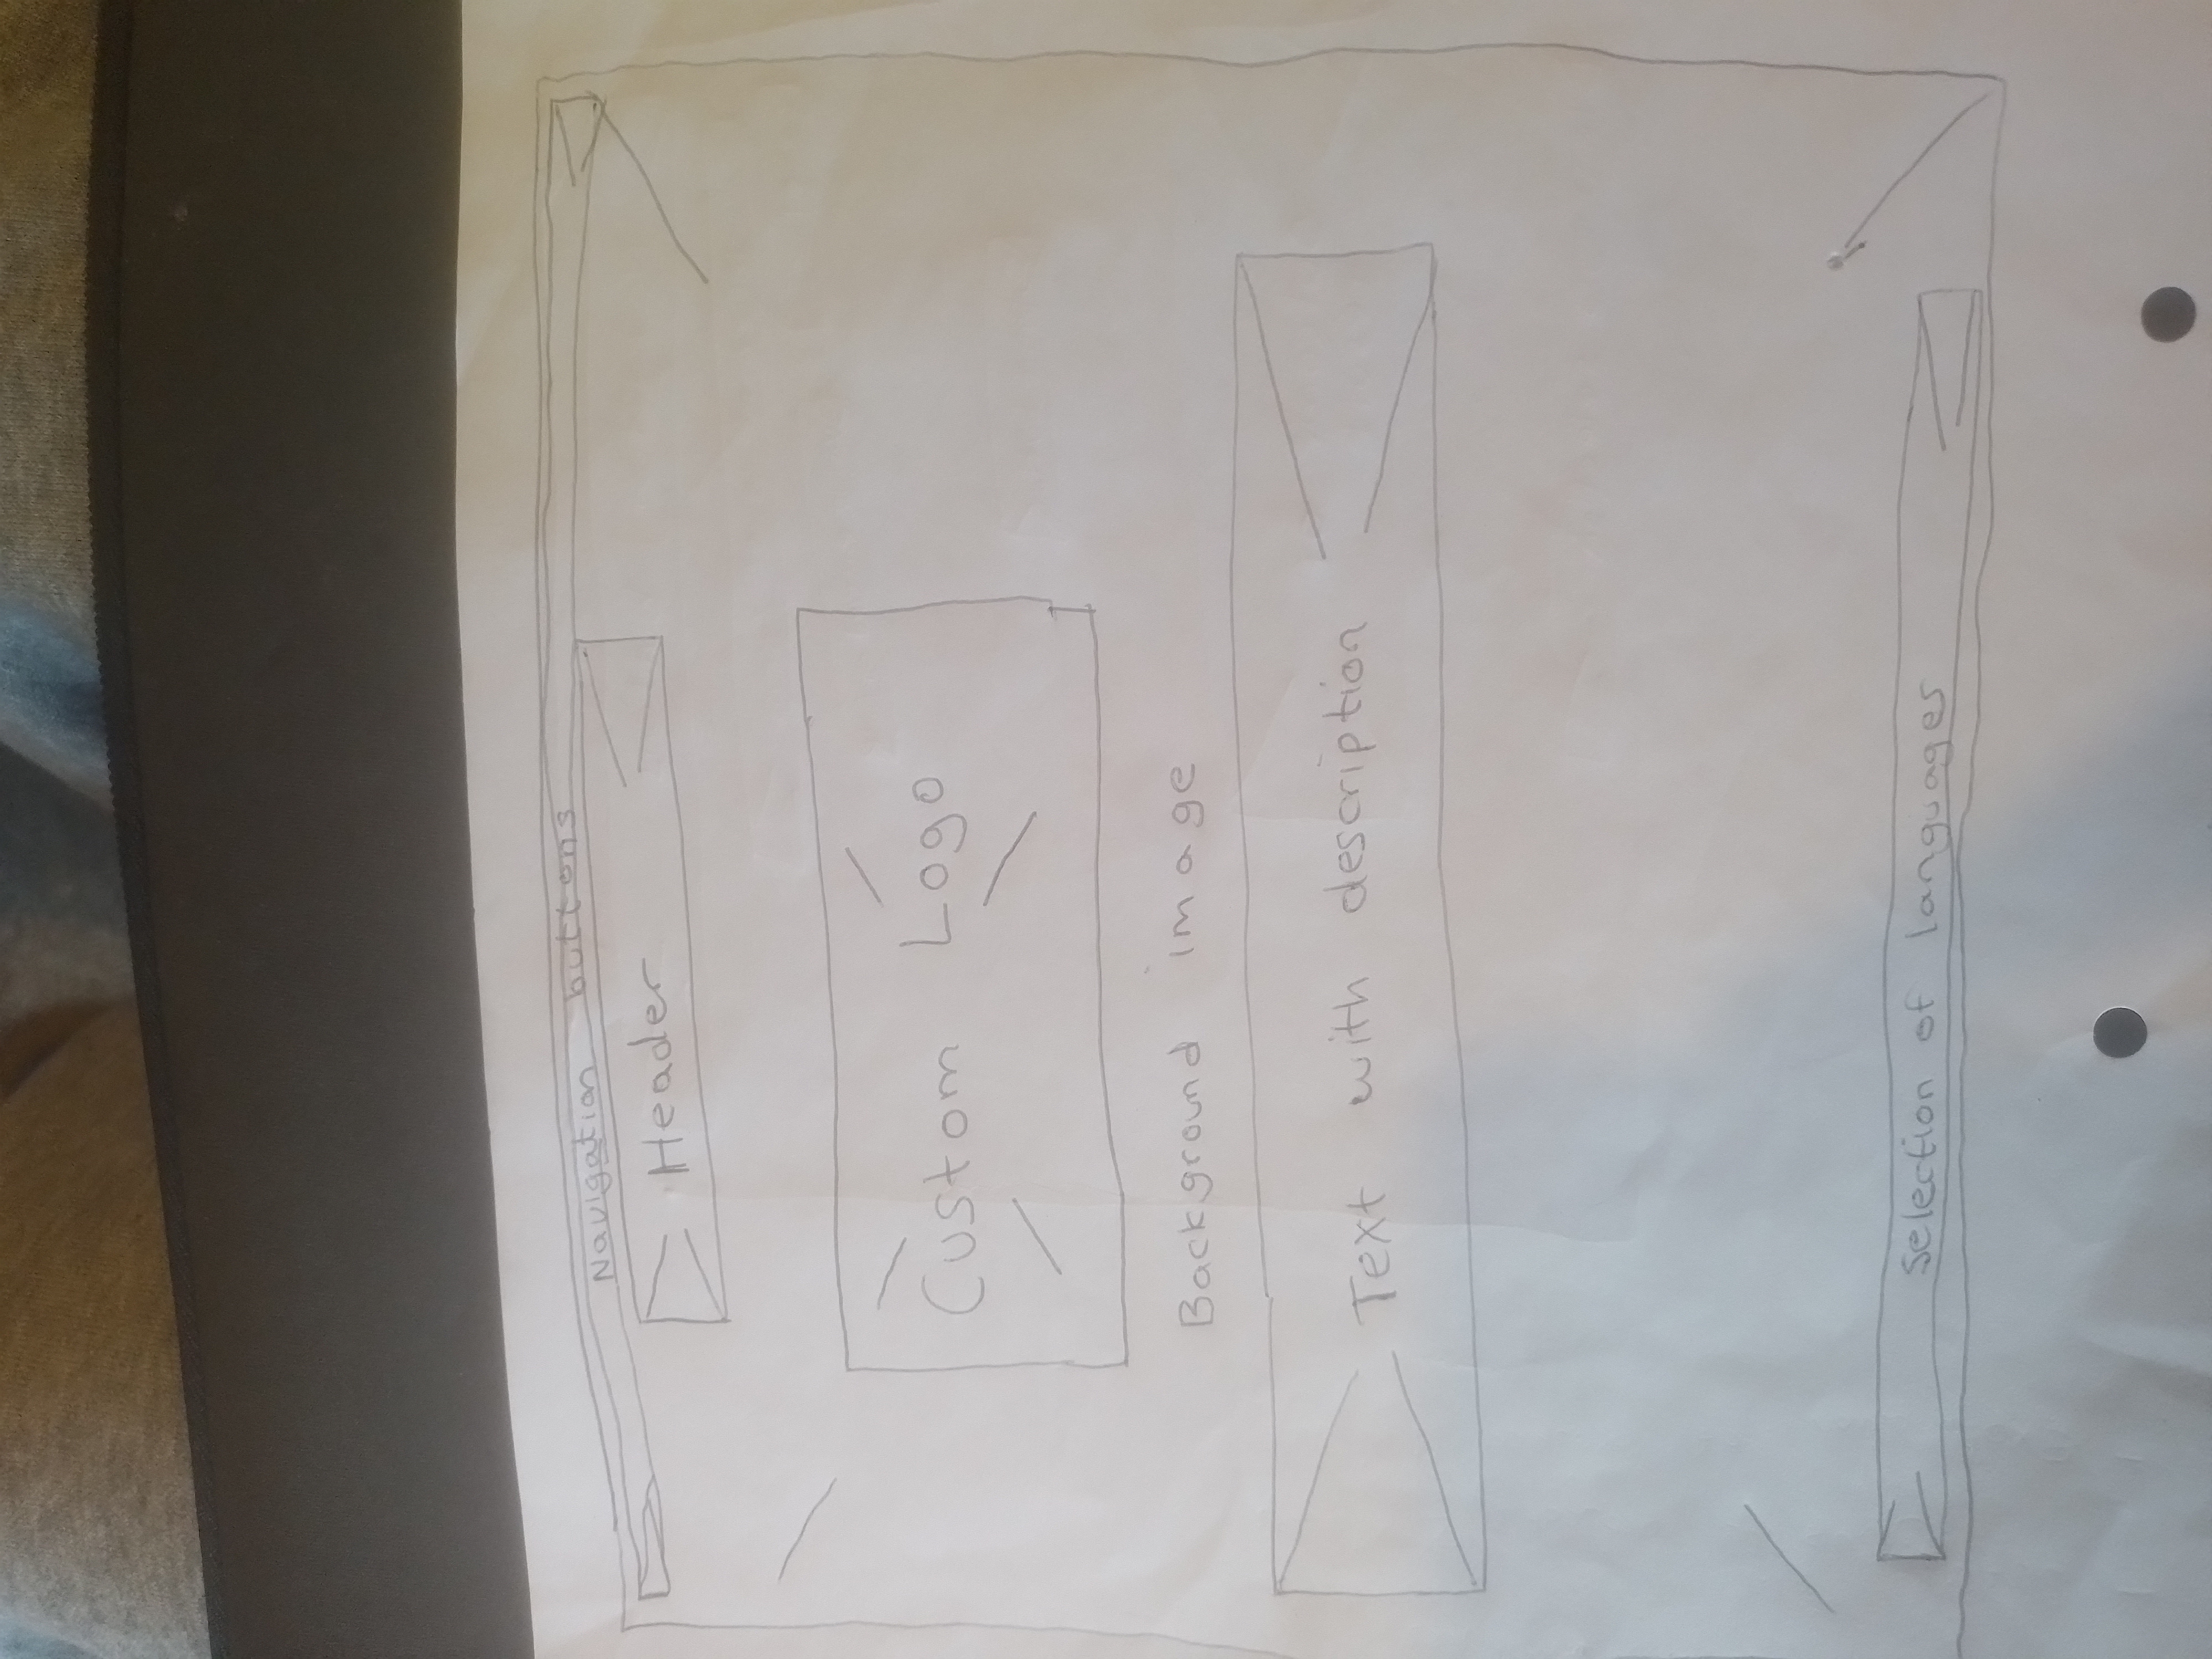 Navigation buttons
Header
Custom Logo
Background image
Text with description
Selection of languages